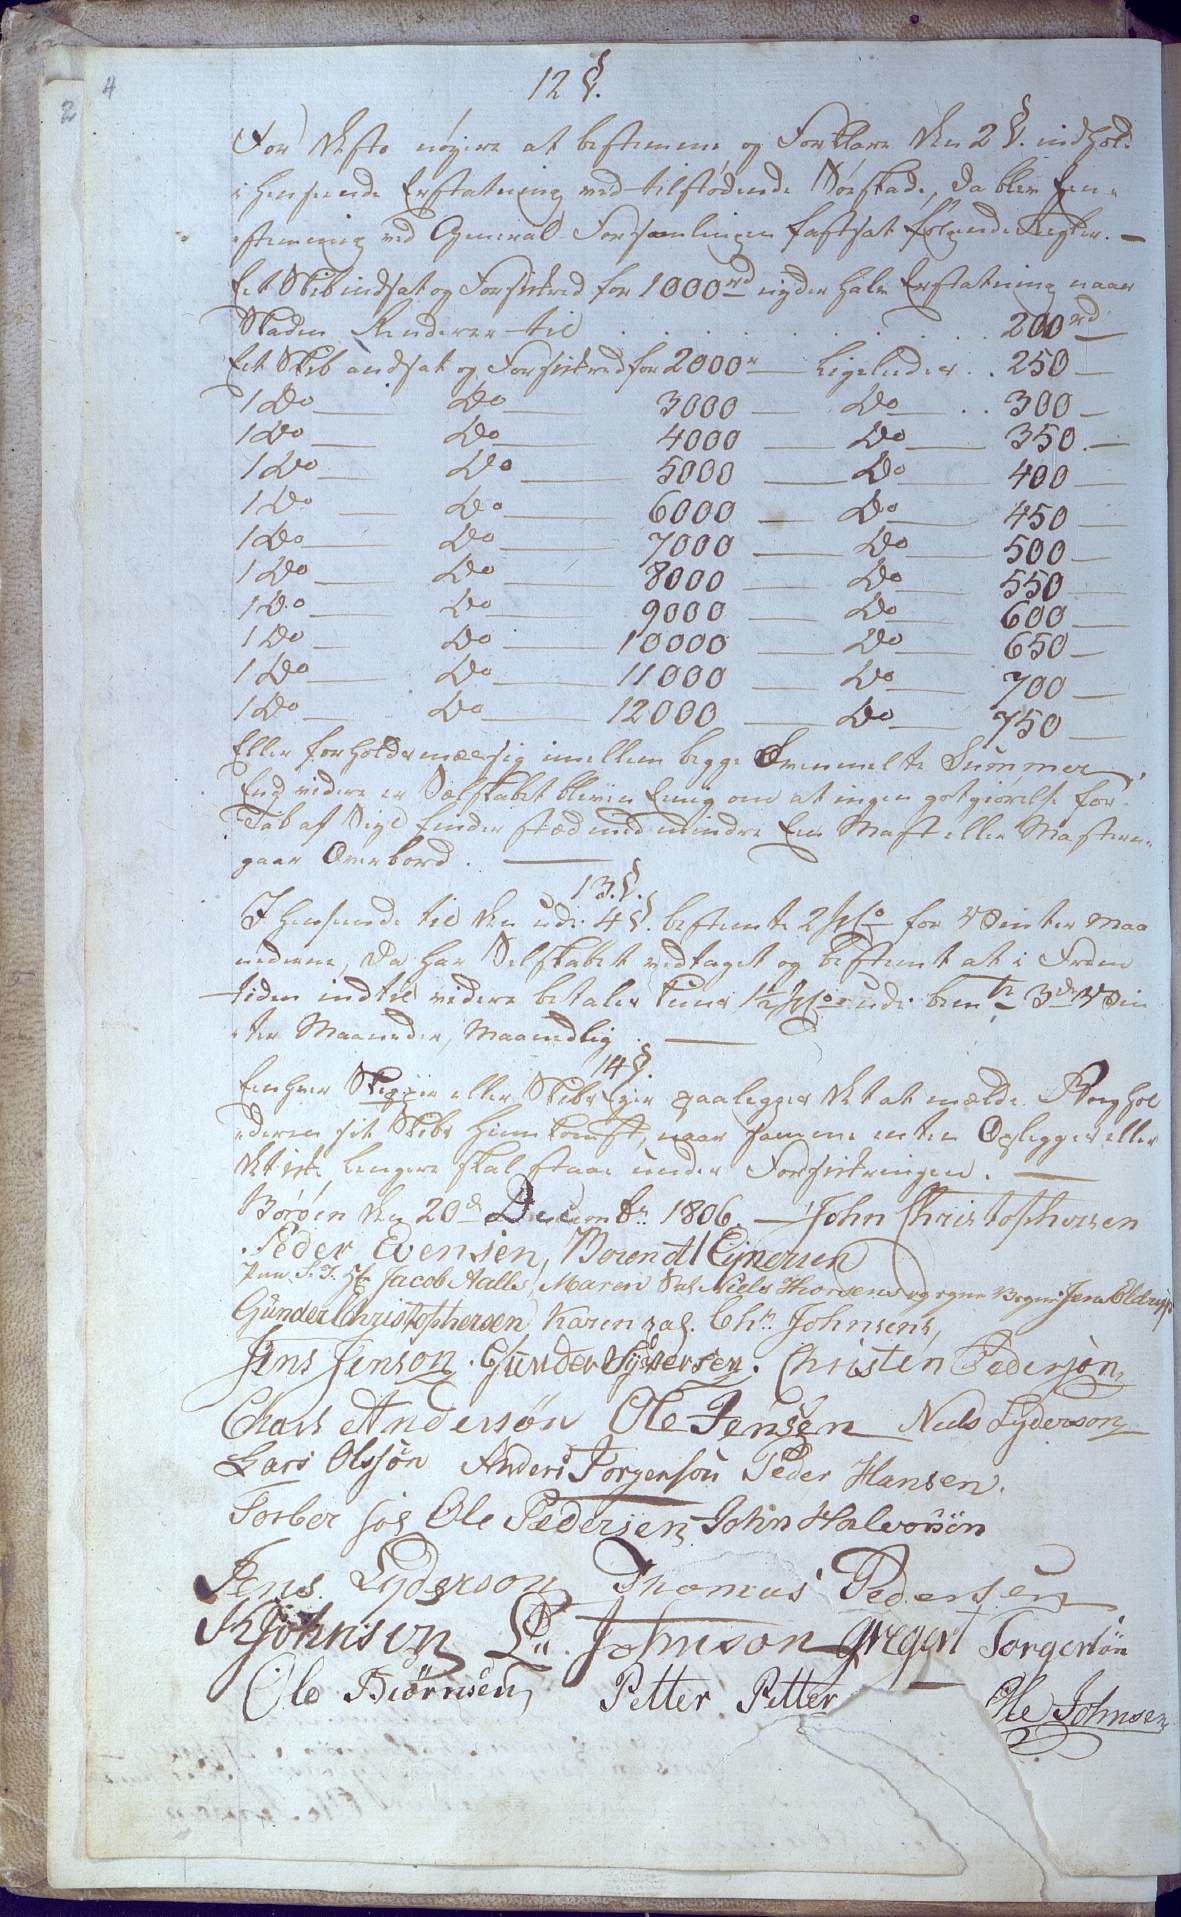 4
2
12 §.
For Nesto nöyere at bestemme og Forklare den 2 §. indhold
i henseende Erstatning ved tilstødende Søeskade, da blev Een„
„stemmig ved General Forsamlingen fastsat følgende Regler. —
Et Skib indsat og Forsikred for 1000 rd nyder halv Erstatning naar
Skaden Renderer til . . . . . . . . 200 rd
Et Skib indsat og Forsikred for 2000 — Ligeledes . . 250 —
1 Do — Do — 3000 — Do — . . 300 —
1 Do — Do — 4000 — Do — 350 . —
1 Do — Do — 5000 — Do — 400 —
1 Do — Do — 6000 — Do — 450 —
1 Do — Do — 7000 — Do — 500 —
1 Do — Do — 8000 — Do — 550 —
1 Do — Do — 9000 — Do — 600 —
1 Do — Do — 10000 — Do — 650 —
1 Do — Do — 11000 — Do — 700 —
1 Do — Do — 12000 — Do — 750 —
Eller forholdsmæsig imellem begge Ommeldte Summer.
End videre er Selskabet bleven Eenig om at ingen gotgiørelse for
Tab af Seyl finder stæd med mindre Een Mast eller Masterne
gaar Overbord . —
13. §.
I henseende til den udi 4 §. bestemte 2 for Vinter Maa
nederne, da har Selskabet vedtaget og bestemt at i Frem
tiden indtil videre betales kuns 1½ udi bem te 3de Vin
„ter Maaneder, Maanedlig . —
14 §.
Eenhver Skipper eller Skibs Eyer paalegges det at melde Boghol
„deren sit Skibs Hiemkomst, naar samme enten Oplegges eller
det ikke lengere skal staae under Forsikringen . —
Borøen den 20de Decembr. 1806. — John Christophersen
Peder Evensen, Berendt Ejnersen
Jacob Aalls, Maren Sal. Niels Thorsens Jens Eldrup
Gunder Christophersen Karen sal. Chr. Johnsens,
Jens Jenson . Gunder Sÿversen . Christen Pedersøn
Andersøn Ole Jensen Niels Lyderson
Lars Olssøn Anders Torgersøn Peder Hansen.
Torber Ole Pedersen John Halvorsøn
Jens Lyderson Thomas Pedersen
K Johnsen L. Johnson Gregert Torgersøn
Ole Biörnsen Petter Petter Ole Johnsen